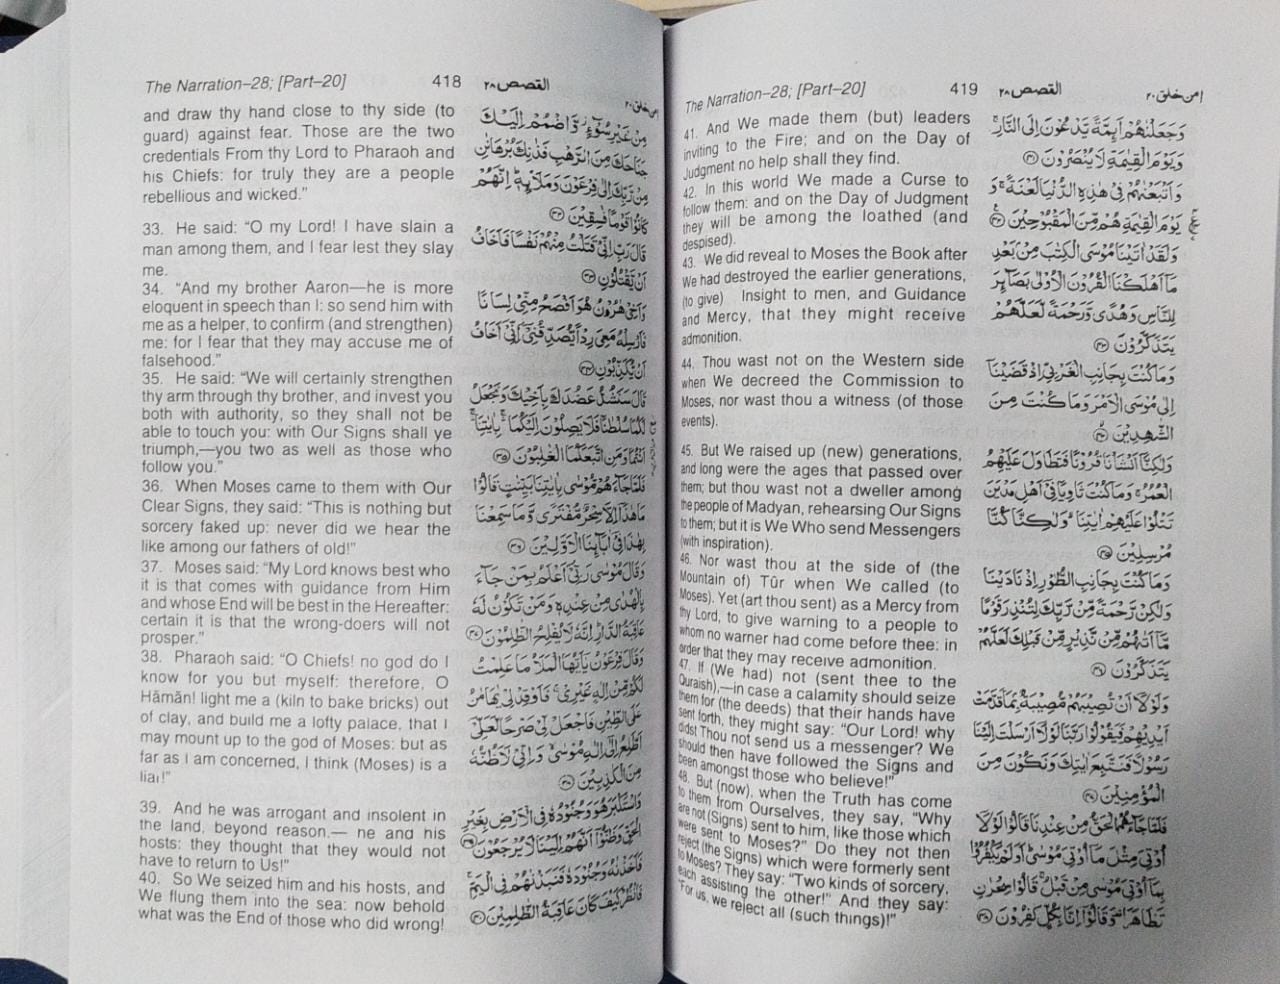 The Narration–28; [Part–20]
418
القصص ٢٨
امن خلق ٢٠
and draw thy hand close to thy side (to
guard) against fear. Those are the two
credentials From thy Lord to Pharaoh and
his Chiefs: for truly they are a people
rebellious and wicked."
33. He said: "O my Lord! I have slain a
man among them, and I fear lest they slay
me.
34. "And my brother Aaron—he is more
eloquent in speech than I: so send him with
me as a helper, to confirm (and strengthen)
me: for I fear that they may accuse me of
falsehood."
35. He said: "We will certainly strengthen
thy arm through thy brother, and invest you
both with authority, so they shall not be
able to touch you: with Our Signs shall ye
triumph,—you two as well as those who
follow you."
36. When Moses came to them with Our
Clear Signs, they said: "This is nothing but
sorcery faked up: never did we hear the
like among our fathers of old!"
37. Moses said: "My Lord knows best who
it is that comes with guidance from Him
and whose End will be best in the Hereafter:
certain it is that the wrong-doers will not
prosper."
38. Pharaoh said: "O Chiefs! no god do I
know for you but myself: therefore, O
Hāmān! light me a (kiln to bake bricks) out
of clay, and build me a lofty palace, that I
may mount up to the god of Moses: but as
far as I am concerned, I think (Moses) is a
liar!"
39. And he was arrogant and insolent in
the land, beyond reason,— he and his
hosts: they thought that they would not
have to return to Us!"
40. So We seized him and his hosts, and
We flung them into the sea: now behold
what was the End of those who did wrong!
مِنْ غَيْرِ سُوْٓءٍ وَّاضْمُمْ اِلَيْكَ
جَنَاحَكَ مِنَ الرَّهْبِ فَذٰنِكَ بُرْهَانٰنِ
مِنْ رَّبِّكَ اِلٰى فِرْعَوْنَ وَمَلَا۟ىِٕهٖ اِنَّهُمْ
كَانُوْا قَوْمًا فٰسِقِيْنَ ٣٢
قَالَ رَبِّ اِنِّيْ قَتَلْتُ مِنْهُمْ نَفْسًا فَاَخَافُ
اَنْ يَّقْتُلُوْنِ ٣٣
وَاَخِيْ هٰرُوْنُ هُوَ اَفْصَحُ مِنِّيْ لِسَانًا
فَاَرْسِلْهُ مَعِيَ رِدْاً يُّصَدِّقُنِيْٓ اِنِّيْٓ اَخَافُ
اَنْ يُّكَذِّبُوْنِ ٣٤
قَالَ سَنَشُدُّ عَضُدَكَ بِاَخِيْكَ وَنَجْعَلُ
لَكُمَا سُلْطٰنًا فَلَا يَصِلُوْنَ اِلَيْكُمَا بِاٰيٰتِنَا
اَنْتُمَا وَمَنِ اتَّبَعَكُمَا الْغٰلِبُوْنَ ٣٥
فَلَمَّا جَآءَهُمْ مُّوْسٰى بِاٰيٰتِنَا بَيِّنٰتٍ قَالُوْا
مَا هٰذَآ اِلَّا سِحْرٌ مُّفْتَرًى وَّمَا سَمِعْنَا
بِهٰذَا فِيْٓ اٰبَآىِٕنَا الْاَوَّلِيْنَ ٣٦
وَقَالَ مُوْسٰى رَبِّيْٓ اَعْلَمُ بِمَنْ جَآءَ
بِالْهُدٰى مِنْ عِنْدِهٖ وَمَنْ تَكُوْنُ لَهٗ
عَاقِبَةُ الدَّارِ اِنَّهٗ لَا يُفْلِحُ الظّٰلِمُوْنَ ٣٧
وَقَالَ فِرْعَوْنُ يٰٓاَيُّهَا الْمَلَاُ مَا عَلِمْتُ
لَكُمْ مِّنْ اِلٰهٍ غَيْرِيْ فَاَوْقِدْ لِيْ يٰهَامٰنُ
عَلَى الطِّيْنِ فَاجْعَلْ لِّيْ صَرْحًا لَّعَلِّيْٓ
اَطَّلِعُ اِلٰٓى اِلٰهِ مُوْسٰى وَاِنِّيْ لَاَظُنُّهٗ
مِنَ الْكٰذِبِيْنَ ٣٨
وَاسْتَكْبَرَ هُوَ وَجُنُوْدُهٗ فِى الْاَرْضِ بِغَيْرِ
الْحَقِّ وَظَنُّوْٓا اَنَّهُمْ اِلَيْنَا لَا يُرْجَعُوْنَ ٣٩
فَاَخَذْنٰهُ وَجُنُوْدَهٗ فَنَبَذْنٰهُمْ فِى الْيَمِّ
فَانْظُرْ كَيْفَ كَانَ عَاقِبَةُ الظّٰلِمِيْنَ ٤٠
The Narration–28; [Part–20]
419
القصص ٢٨
امن خلق ٢٠
41. And We made them (but) leaders
inviting to the Fire; and on the Day of
Judgment no help shall they find.
42. In this world We made a Curse to
follow them: and on the Day of Judgment
they will be among the loathed (and
despised).
43. We did reveal to Moses the Book after
We had destroyed the earlier generations,
(to give) Insight to men, and Guidance
and Mercy, that they might receive
admonition.
44. Thou wast not on the Western side
when We decreed the Commission to
Moses, nor wast thou a witness (of those
events).
45. But We raised up (new) generations,
and long were the ages that passed over
them; but thou wast not a dweller among
the people of Madyan, rehearsing Our Signs
to them; but it is We Who send Messengers
(with inspiration).
46. Nor wast thou at the side of (the
Mountain of) Tûr when We called (to
Moses). Yet (art thou sent) as a Mercy from
thy Lord, to give warning to a people to
whom no warner had come before thee: in
order that they may receive admonition.
47. If (We had) not (sent thee to the
Quraish),—in case a calamity should seize
them for (the deeds) that their hands have
sent forth, they might say: "Our Lord! why
didst Thou not send us a messenger? We
should then have followed the Signs and
been amongst those who believe!"
48. But (now), when the Truth has come
to them from Ourselves, they say, "Why
are not (Signs) sent to him, like those which
were sent to Moses?" Do they not then
reject (the Signs) which were formerly sent
to Moses? They say: "Two kinds of sorcery,
each assisting the other!" And they say:
"For us, we reject all (such things)!"
وَجَعَلْنٰهُمْ اَىِٕمَّةً يَّدْعُوْنَ اِلَى النَّارِ
وَيَوْمَ الْقِيٰمَةِ لَا يُنْصَرُوْنَ ٤١
وَاَتْبَعْنٰهُمْ فِيْ هٰذِهِ الدُّنْيَا لَعْنَةً وَ
يَوْمَ الْقِيٰمَةِ هُمْ مِّنَ الْمَقْبُوْحِيْنَ ٤٢
وَلَقَدْ اٰتَيْنَا مُوْسَى الْكِتٰبَ مِنْ بَعْدِ
مَآ اَهْلَكْنَا الْقُرُوْنَ الْاُوْلٰى بَصَآىِٕرَ
لِلنَّاسِ وَهُدًى وَّرَحْمَةً لَّعَلَّهُمْ
يَتَذَكَّرُوْنَ ٤٣
وَمَا كُنْتَ بِجَانِبِ الْغَرْبِيِّ اِذْ قَضَيْنَآ
اِلٰى مُوْسَى الْاَمْرَ وَمَا كُنْتَ مِنَ
الشّٰهِدِيْنَ ٤٤
وَلٰكِنَّآ اَنْشَاْنَا قُرُوْنًا فَتَطَاوَلَ عَلَيْهِمُ
الْعُمُرُ وَمَا كُنْتَ ثَاوِيًا فِيْٓ اَهْلِ مَدْيَنَ
تَتْلُوْا عَلَيْهِمْ اٰيٰتِنَا وَلٰكِنَّا كُنَّا
مُرْسِلِيْنَ ٤٥
وَمَا كُنْتَ بِجَانِبِ الطُّوْرِ اِذْ نَادَيْنَا
وَلٰكِنْ رَّحْمَةً مِّنْ رَّبِّكَ لِتُنْذِرَ قَوْمًا
مَّآ اَتٰىهُمْ مِّنْ نَّذِيْرٍ مِّنْ قَبْلِكَ لَعَلَّهُمْ
يَتَذَكَّرُوْنَ ٤٦
وَلَوْلَآ اَنْ تُصِيْبَهُمْ مُّصِيْبَةٌ بِمَا قَدَّمَتْ
اَيْدِيْهِمْ فَيَقُوْلُوْا رَبَّنَا لَوْلَآ اَرْسَلْتَ اِلَيْنَا
رَسُوْلًا فَنَتَّبِعَ اٰيٰتِكَ وَنَكُوْنَ مِنَ
الْمُؤْمِنِيْنَ ٤٧
فَلَمَّا جَآءَهُمُ الْحَقُّ مِنْ عِنْدِنَا قَالُوْا لَوْلَآ
اُوْتِيَ مِثْلَ مَآ اُوْتِيَ مُوْسٰى اَوَلَمْ يَكْفُرُوْا
بِمَآ اُوْتِيَ مُوْسٰى مِنْ قَبْلُ قَالُوْا سِحْرٰنِ
تَظَاهَرَا وَقَالُوْٓا اِنَّا بِكُلٍّ كٰفِرُوْنَ ٤٨